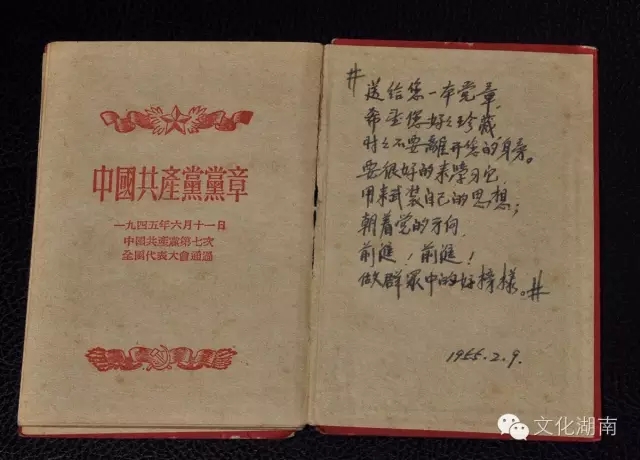 中國共產黨黨章
一九四五年六月十一日
中國共產黨第七次
全國代表大會通過
送给您一本党章,
希望您好々珍藏
时々不要離开您的身旁。
要很好的来学习它,
用来武装自己的思想;
朝着党的方向,
前進!前進!
做群眾中的好榜樣。
1955.2.9.
文化湖南